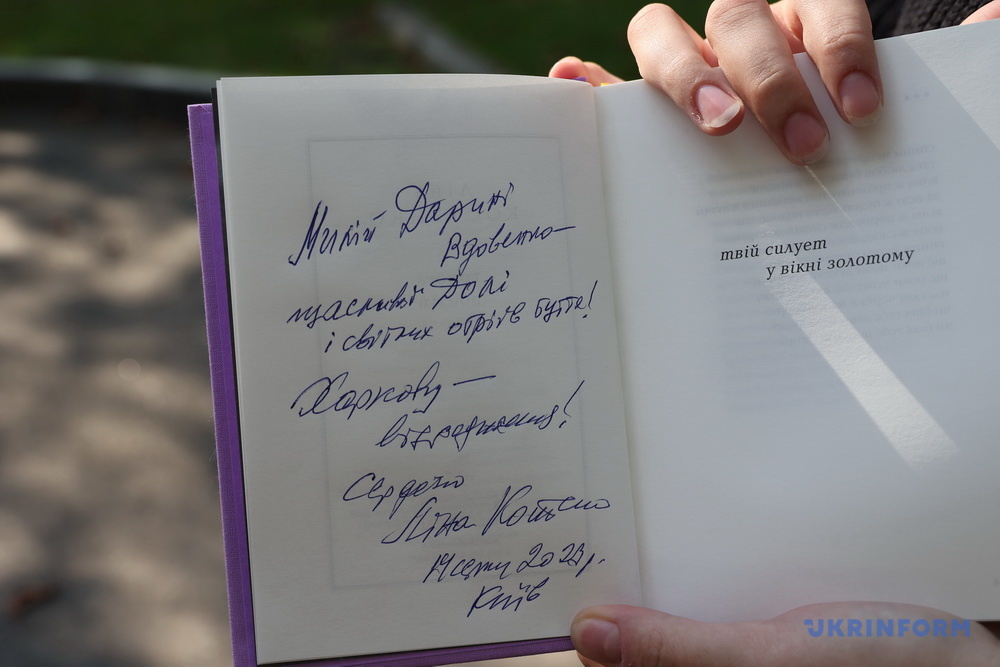 Милій Дарині
Вдовенко —
щасливої Долі
і світлих обріїв буття!
Харкову —
відродження!
Сердечно
Ліна Костенко
2023 р.
Київ
твій силует
у вікні золотому
UKRINFORM